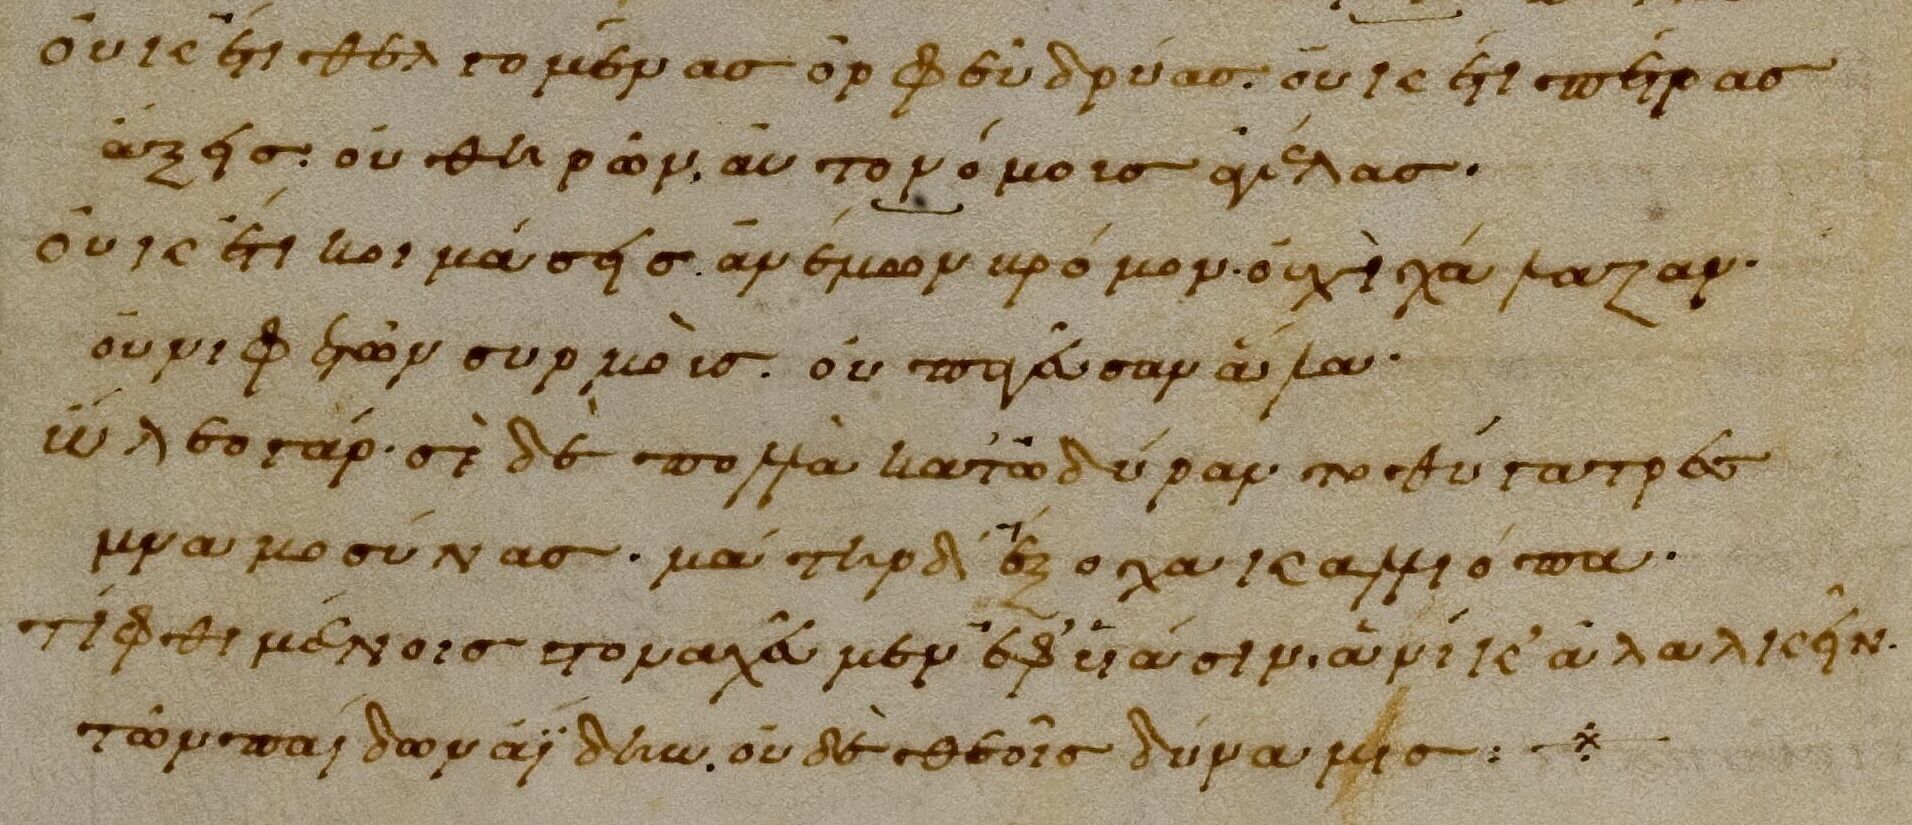 οὐκέτι θελγομένας ὀρφεῦ δρύας. οὐκέτι πέτρας
ἄξεις. οὐ θηρῶν αὐτονόμους ἀγέλας.
οὐκέτι κοιμάσεις ἀνέμων βρόμον. οὐχὶ χάλαζαν.
οὐ νιφετῶν συρμοὺς. οὐ παταγεῦσαν ἅλα.
ὤλεο γάρ. σὲ δὲ πολλὰ κατωδύραντο θύγατρες
μναμοσύνας. μάτηρ δ' ἔξοχα καλλιόπα.
τί φθιμένοις στοναχεῦμεν ἐφ' υἱάσιν. ἁνίκ' ἀλαλκεῖν.
τῶν παίδων ἀΐδην. οὐδὲ θεοῖς δύναμις: